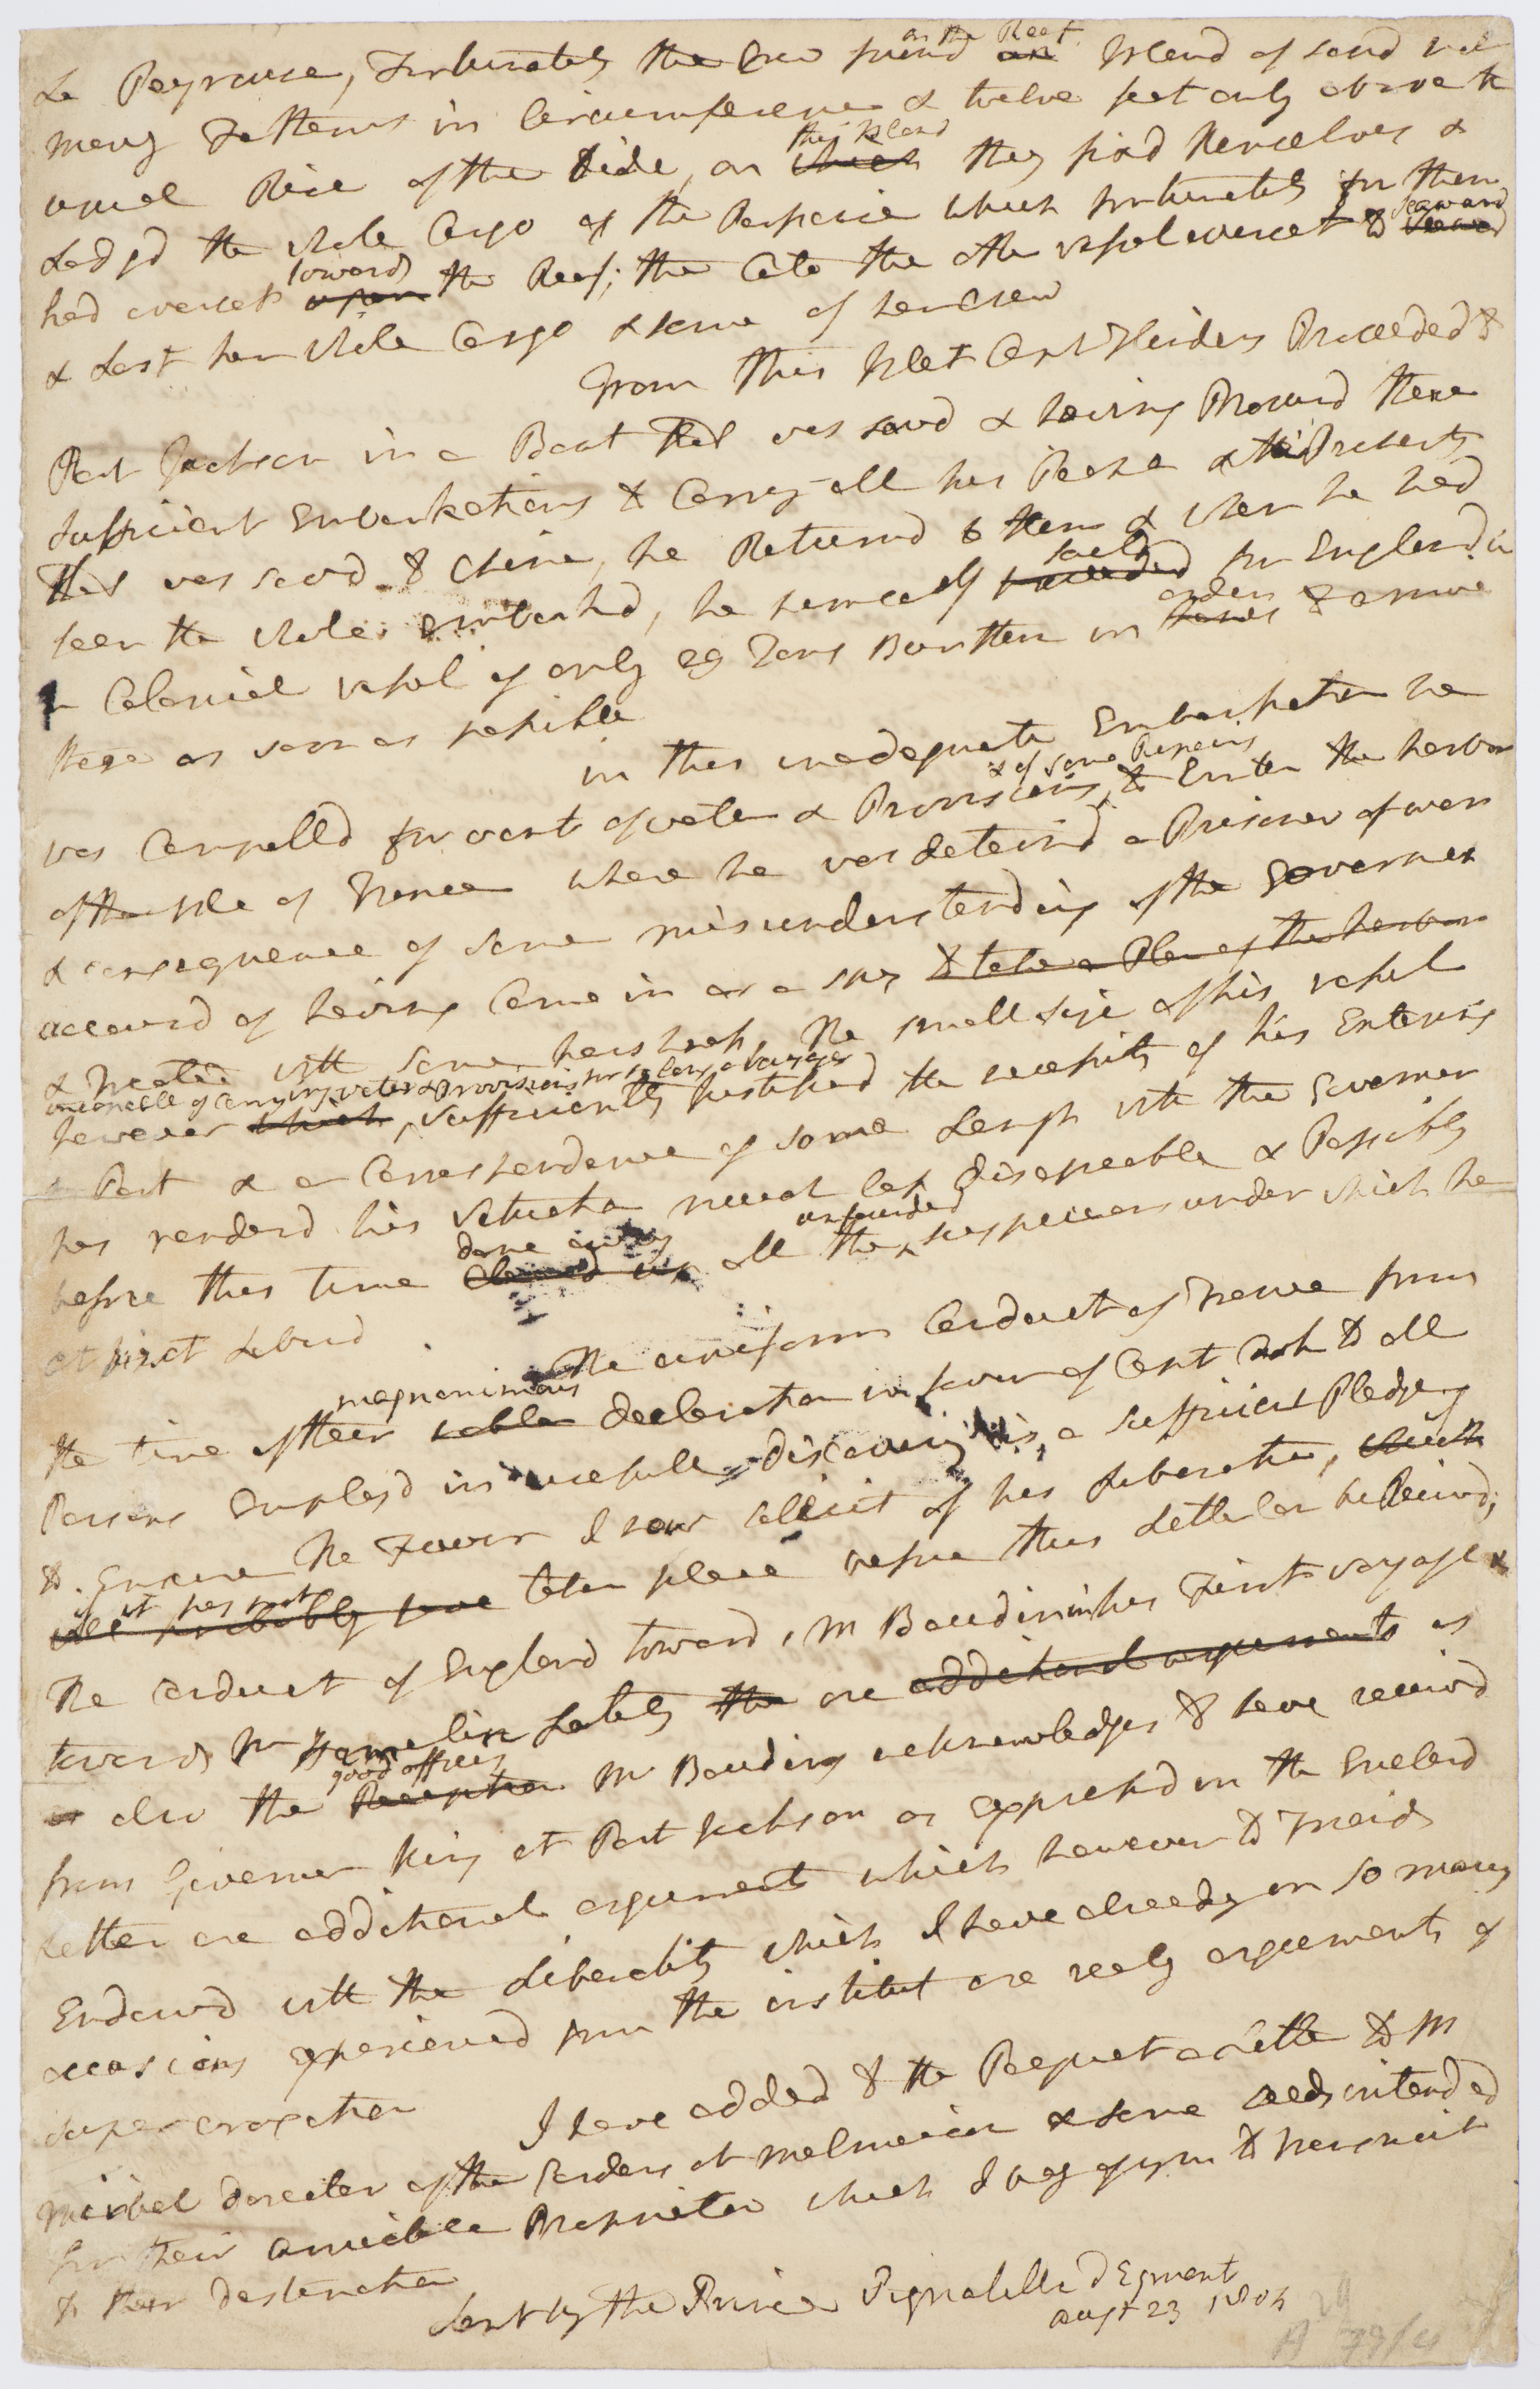 La Peyrouse, Fortunately the Crew found on the Reef an Island of sand not
many Fathoms in Circumference & twelve feet only above the
usual Rise of the tide, on which this Island they fixd themselves &
Lodgd the whole Cargo of the Porpoise which fortunately for them
had overset upon towards the Reef; the Cato the other vessel overset to seaward
& Lost her whole Cargo & some of her Crew
From this Islet Capt Flinders Proceeded to
Port Jackson in a Boat that was savd & having Procurd there
sufficient Embarkations to Carry all his People & the Presents
that was savd to China, he Returnd to them & when he had
seen the whole embarkd, he himself proceeded saild for England in
a Colonial vessel of only 29 Tons Burthen in hopes order to arrive
there as soon as possible
in this inadequate Embarkation he
was Compelld for want of water & Provisions & of some Repairs, to Enter the harbor
of the Isle of France where he was detaind a Prisoner of war
in consequence of some misunderstanding of the Governor
accusd of having Come in as a spy to take a Plan of the harbor
& treated with some harshness. The small size of his vessel
incapable of Carrying water & provisions for so long a voyage
however which, sufficiently Justified the necessity of his Entering
a Port & a Correspondence of some Length with the Governor
has renderd his situation much less disagreeable & Possibly
before this time cleard up done away all the unfounded suspicions under which he
at first Labord
The uniform Conduct of France from
the time of their noble magnanimous declaration in favor of Capt Cook to all
Persons Employd in usefull discovery is, a sufficient Pledge
to Ensure the Favor I now sollicit of his Liberation, which
will probably have if it has not taken place before this Letter can be Receivd;
The conduct of England toward, M Baudin in his First voyage &
towards M Hamelin Lately the are additional arguments as
as also the Reception good offices Mr Baudin acknowledges to have receivd
from Governor King at Port Jackson as expressd in the Enclosd
Letter are additional arguments which however to Friends
Endowd with the Liberality which I have already on so many
occasions experienced from the institut are realy arguments of
supererogation
I have added to the Pacquet a Letter to M
Mirbel director of the Gardens at Malmaison & some seeds intended
for their amiable Proprietor which I beg of you to transmit
to their destination
sent by the Prince Pignatelli d Egmont
Augst 23 1804
A 79/4